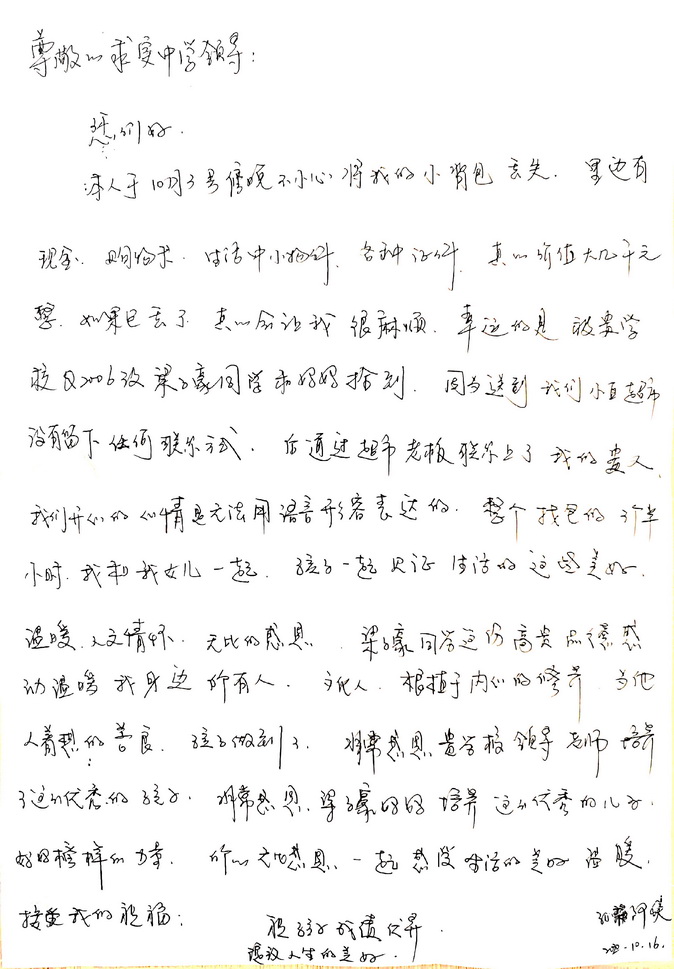 尊敬的求实中学领导：
您们好.
本人于10月3号傍晚不小心将我的小背包丢失. 里边有
现金. 购物卡. 生活中小物件. 各种证件. 真的价值大几千元
整. 如果包丢了 真的会让我很麻烦. 幸运的是被贵学
校Q2006级梁子豪同学和妈妈捡到. 因为送到我们小区超市
没有留下任何联系方式. 后通过超市老板联系上了我的贵人.
我们开心的心情是无法用语言形容表达的. 整个找包的3个半
小时. 我和我女儿一起. 孩子一起见证生活的这些美好.
温暖. 人文情怀. 无比的感恩. 梁子豪同学这份高贵品德感
动温暖我身边所有人. 文化人. 根植于内心的修养 为他
人着想的善良. 孩子做到了. 非常感恩贵学校领导老师培养
了这么优秀的孩子. 非常感恩梁子豪妈妈培养这么优秀的儿子.
好的榜样的力量. 所以无比感恩. 一起感受生活的美好 温暖.
接受我的祝福：
祝孩子成绩优异.
遇议人生的美好.
10.16.